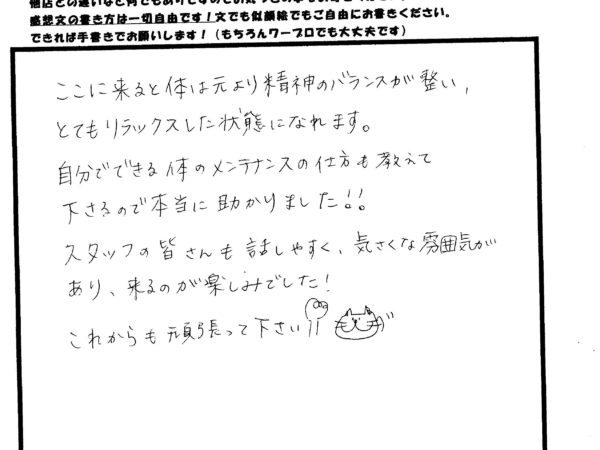 感想文の書き方は一切自由です！文でも似顔絵でもご自由にお書きください。
できれば手書きでお願いします！（もちろんワープロでも大丈夫です）
ここに来ると体は元より精神のバランスが整い、
とてもリラックスした状態になれます。
自分でできる体のメンテナンスの仕方も教えて
下さるので本当に助かりました！！
スタッフの皆さんも話しやすく、気さくな雰囲気が
あり、来るのが楽しみでした！
これからも頑張って下さい！！